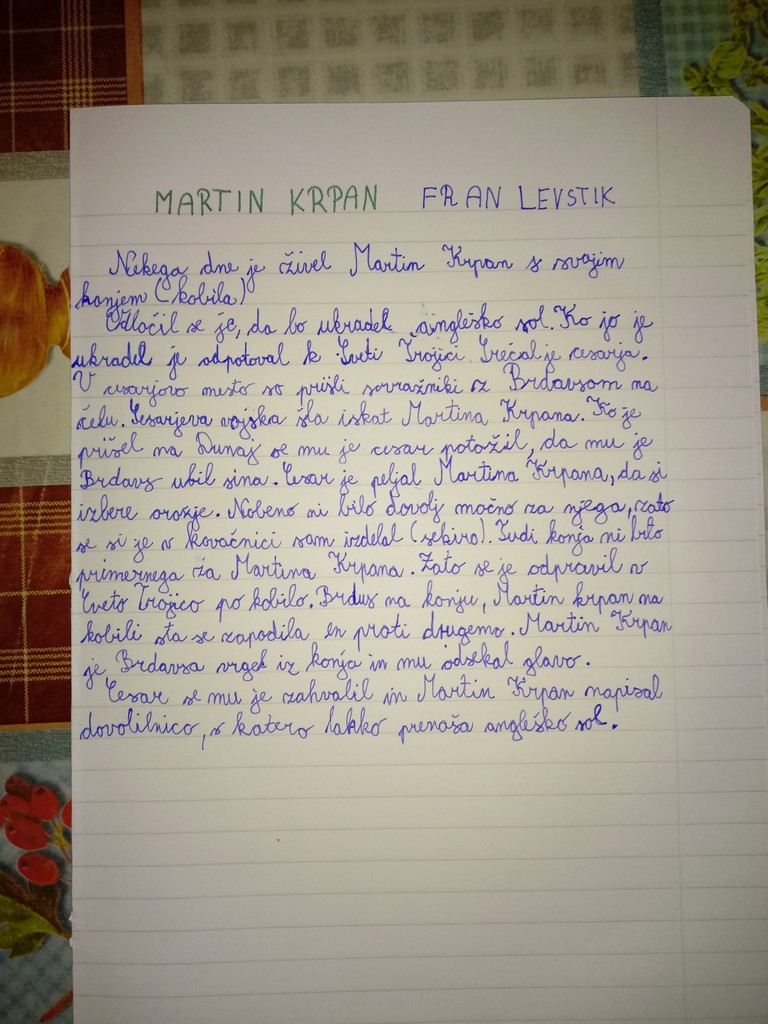 MARTIN KRPAN FRAN LEVSTIK
Nekega dne je živel Martin Krpan s svojim
konjem (kobila)
Odločil se je, da bo ukradel angleško sol. Ko jo je
ukradel je odpotoval k Sveti Trojici Srečal je cesarja.
V cesarjovo mesto so prišli sovražniki z Brdavsom na
čelu. Cesarjeva vojska šla iskat Martina Krpana. Ko je
prišel na Dunaj se mu je cesar potožil, da mu je
Brdavs ubil sina. Cesar je peljal Martina Krpana, da si
izbere orožje. Nobeno ni bilo dovolj močno za njega, zato
se si je v kovačnici sam izdelal (sekiro). Tudi konja ni bilo
primernega za Martina Krpana. Zato se je odpravil v
Sveto Trojico po kobilo. Brdus na konju, Martin krpan na
kobili sta se zapodila en proti drugemo. Martin Krpan
je Brdavsa vrgel iz konja in mu odskal glavo.
Cesar se mu je zahvalil in Martin Krpan napisal
dovolilnico, s katero lahko prenaša angleško sol.